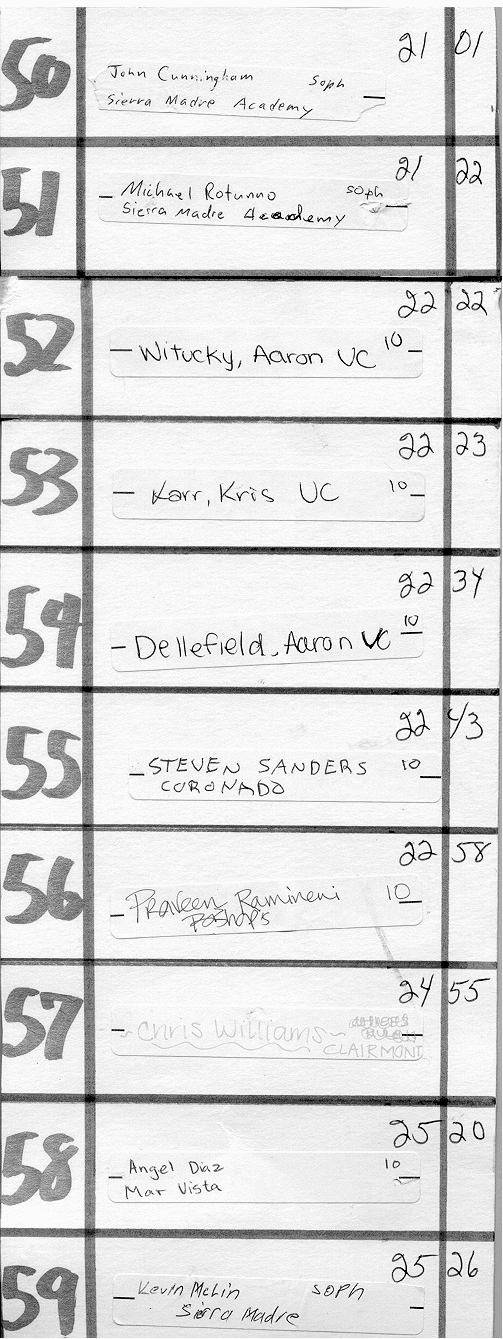 50 21 01
John Cunningham Soph
Sierra Madre Academy
51 21 22
Michael Rotunno soph
Sierra Madre Academy
52 22 22
Witucky, Aaron UC 10
53 22 23
Karr, Kris UC 10
54 22 34
Dellefield, Aaron UC 10
55 22 43
STEVEN SANDERS 10
CORONADO
56 22 58
Praveen Ramineni 10
57 24 55
Chris Williams
CLAIRMONT
58 25 20
Angel Diaz 10
Mar Vista
59 25 26
Kevin Melin SOPH
Sierra Madre